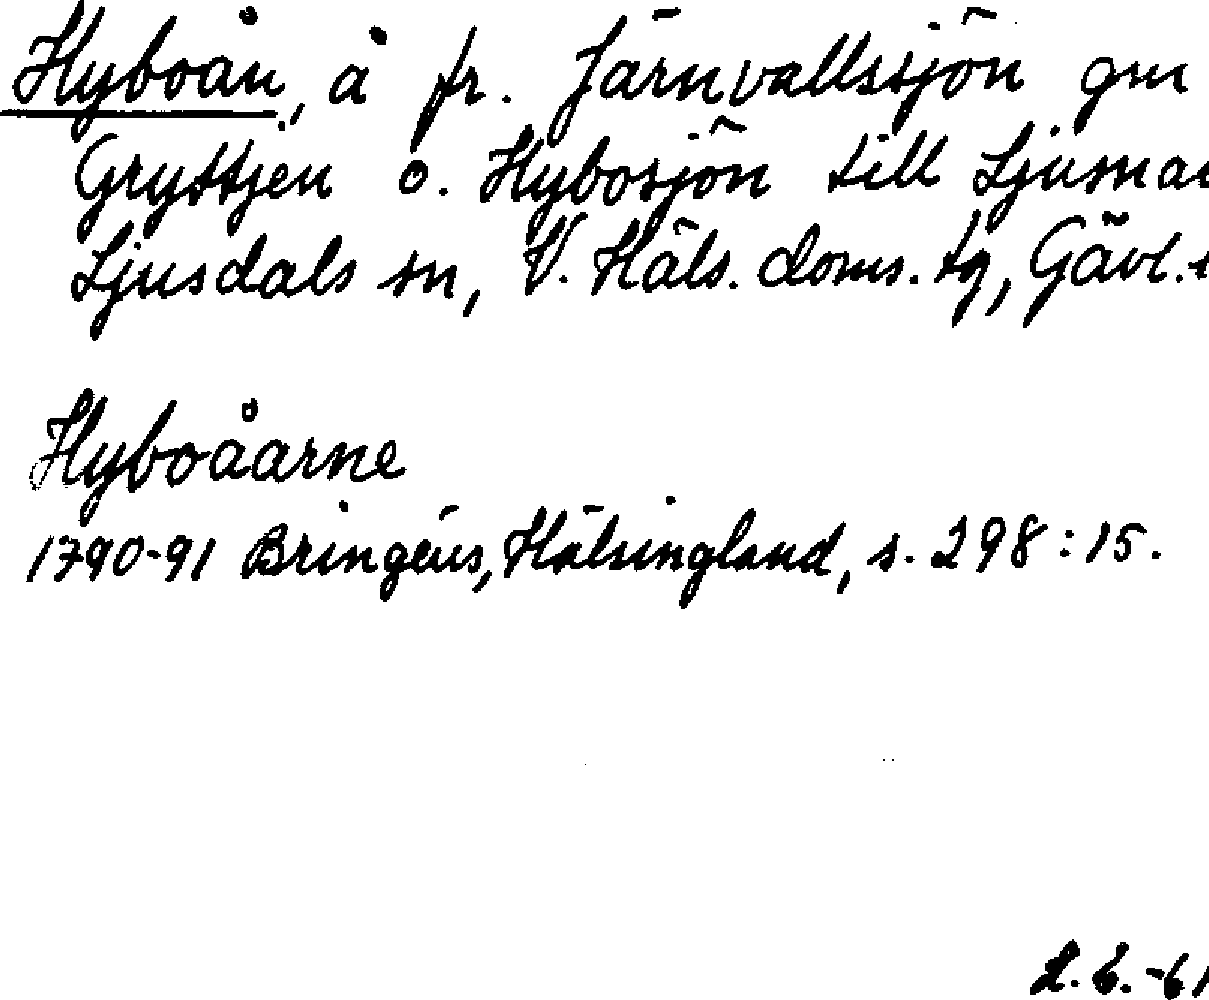 Hyboån, å fr. Järnvallssjön gm
Gryttjen o. Hybosjön till Ljusnan
Ljusdals sn, V. Häls. doms. tg, Gävl.
Hyboåarne
1790-91 Bringéus, Hälsingland, s. 298:15.
L. E. -61